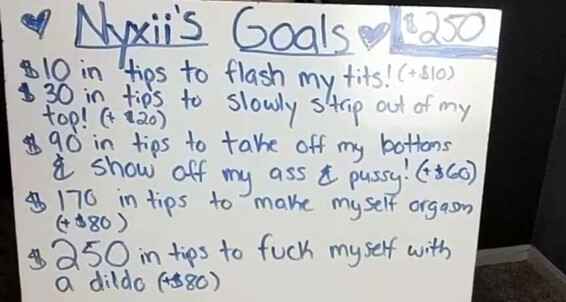 Nyxii's Goals $250
$10 in tips to flash my tits! (+$10)
$30 in tips to slowly strip out of my
top! (+ $20)
$90 in tips to take off my bottoms
& show off my ass & pussy! (+$60)
$170 in tips to make myself orgasm
(+$80)
$250 in tips to fuck myself with
a dildo (+$80)